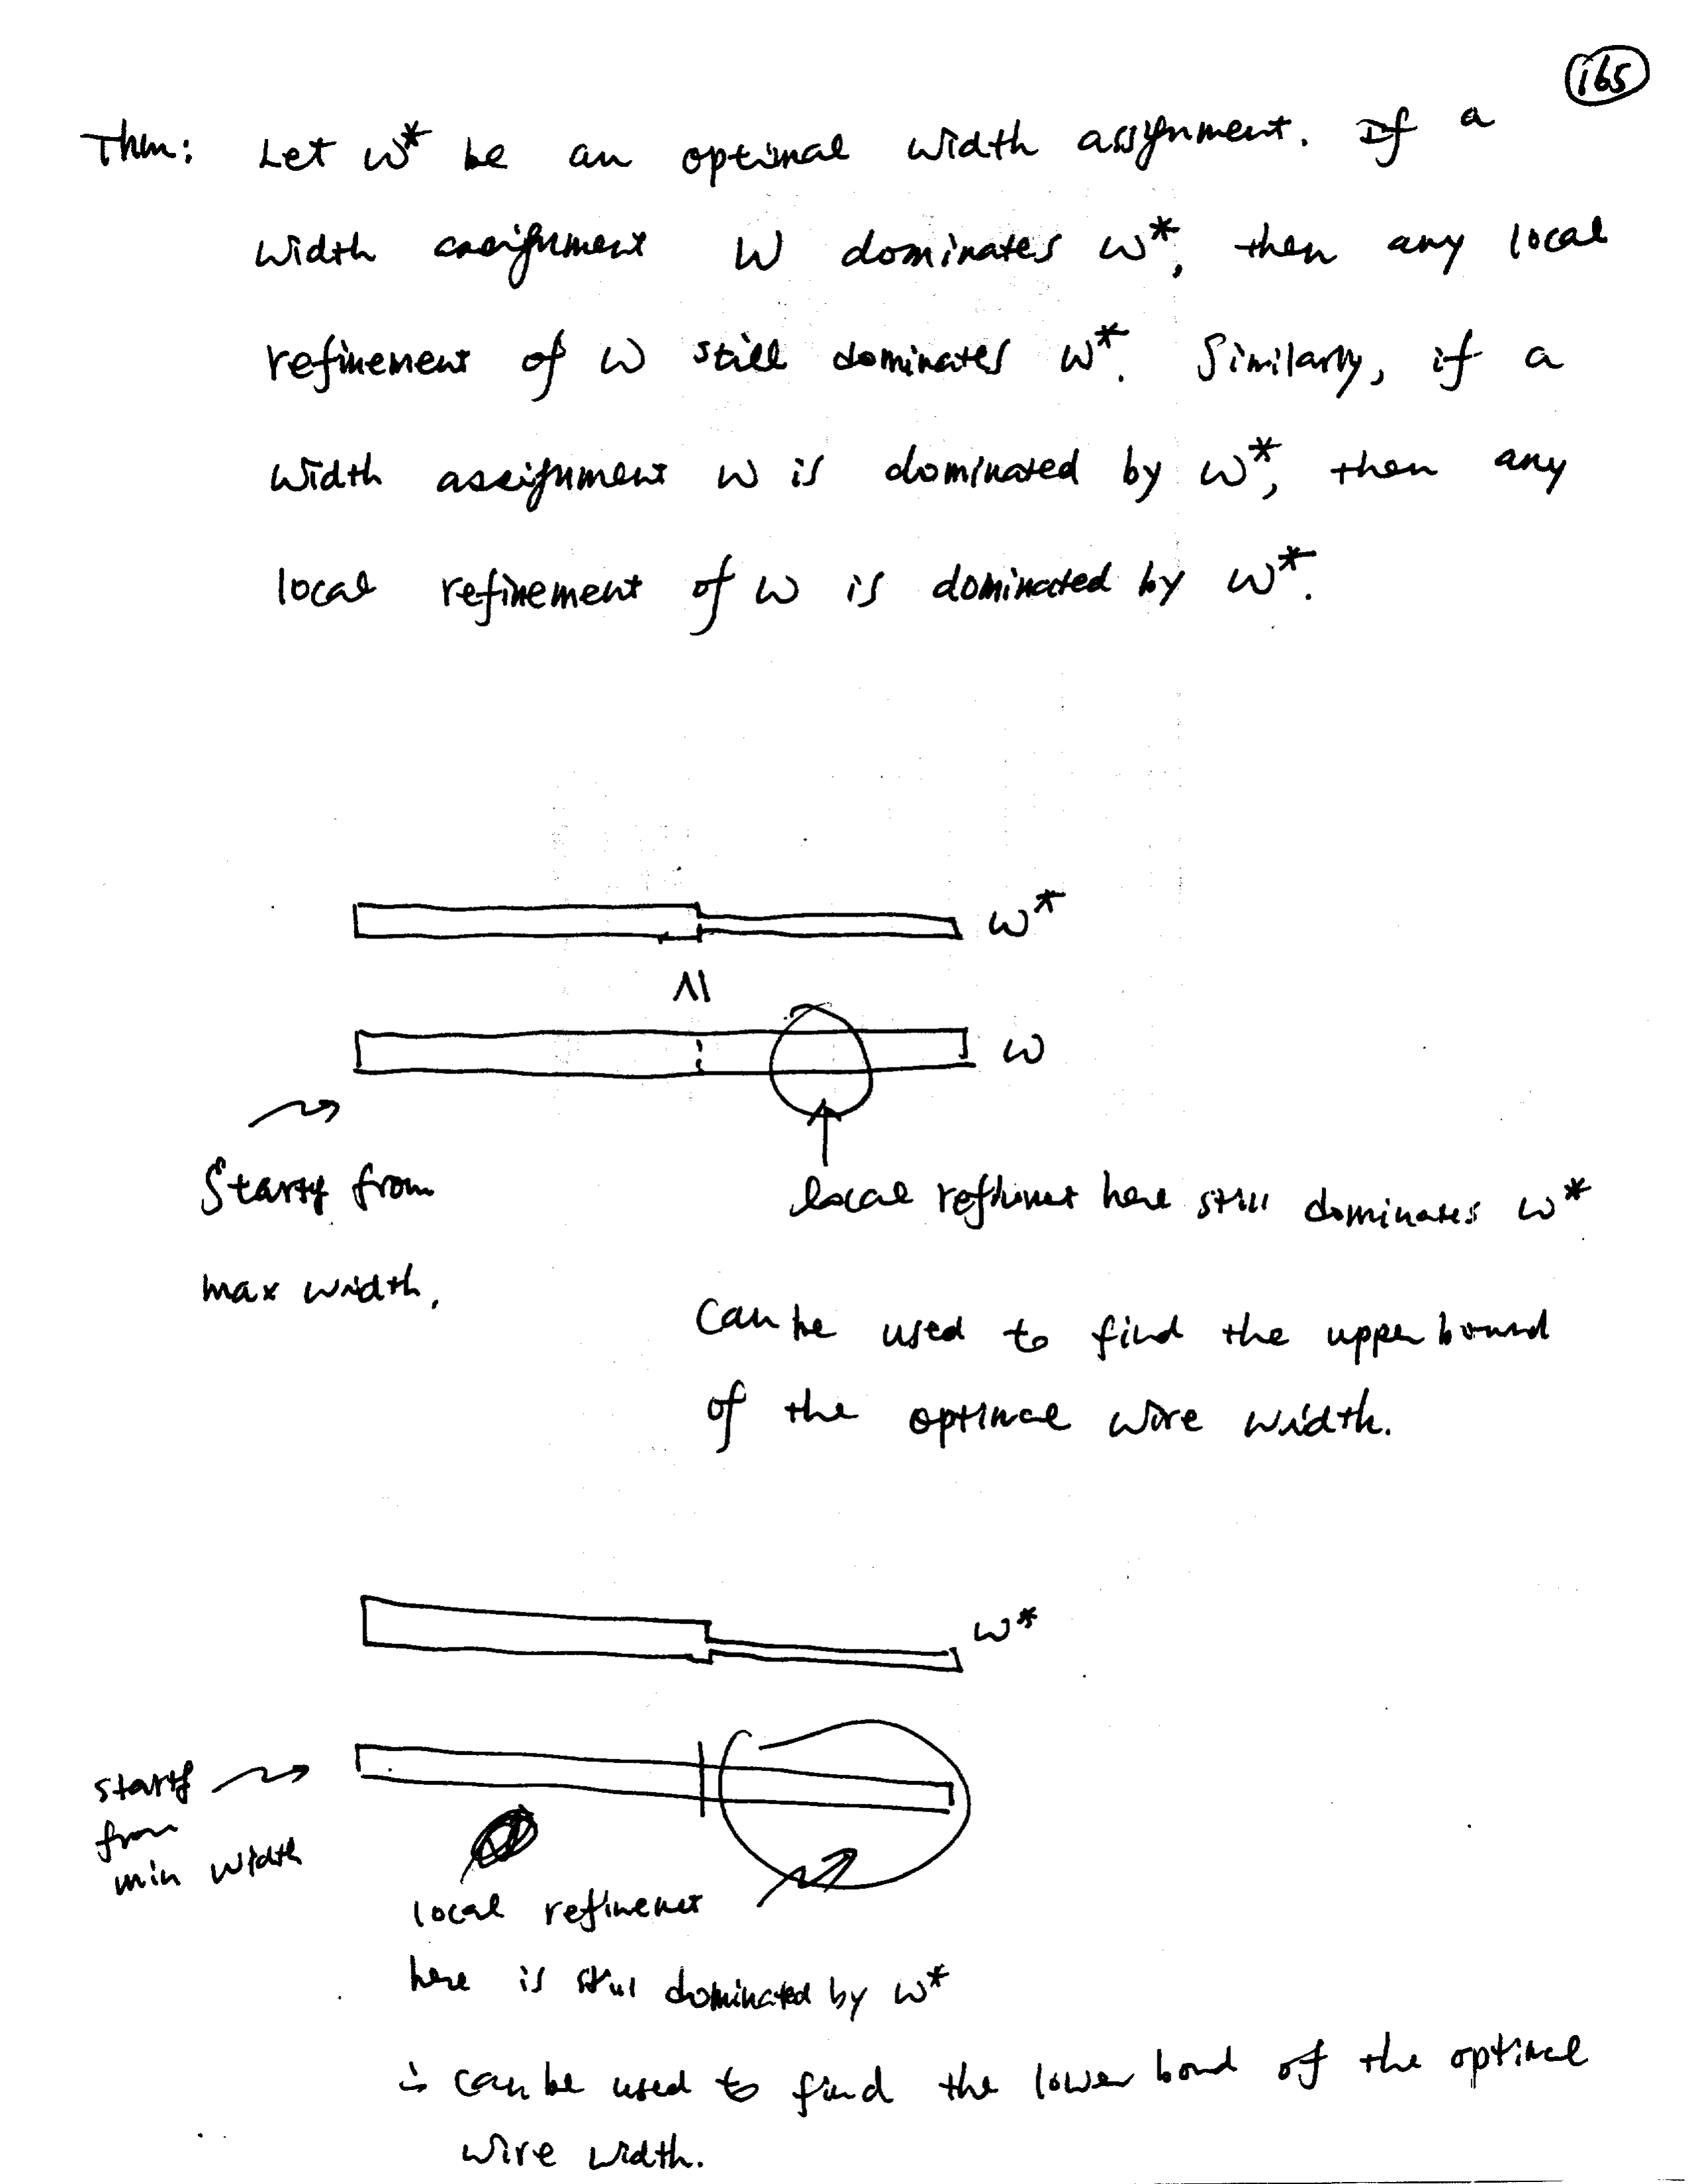 165
Thm: Let w* be an optimal width assignment. If a
width assignment W dominates w*, then any local
refinement of w still dominates w*. Similarly, if a
width assignment w is dominated by w*, then any
local refinement of w is dominated by w*.
w*
w
Start from
max width.
local refinement here still dominates w*
Can be used to find the upper bound
of the optimal wire width.
w*
start
from
min width
local refinement
here is still dominated by w*
∴ can be used to find the lower bond of the optimal
wire width.